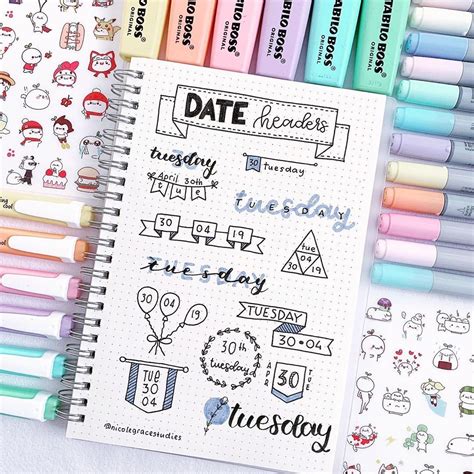 STABILO BOSS
ORIGINAL
STABILO BOSS
ORIGINAL
STABILO BOSS
ORIGINAL
STABILO BOSS
ORIGINAL
DATE headers
tuesday
April 30th
tue
30 tuesday
tuesday
TUESDAY
30 04 19
30
04
19
tuesday
30
04
19
TUESDAY
30•04
30th
tuesday
TUE
30
04
APR
30
TUE
tuesday
@nicolegracestudies